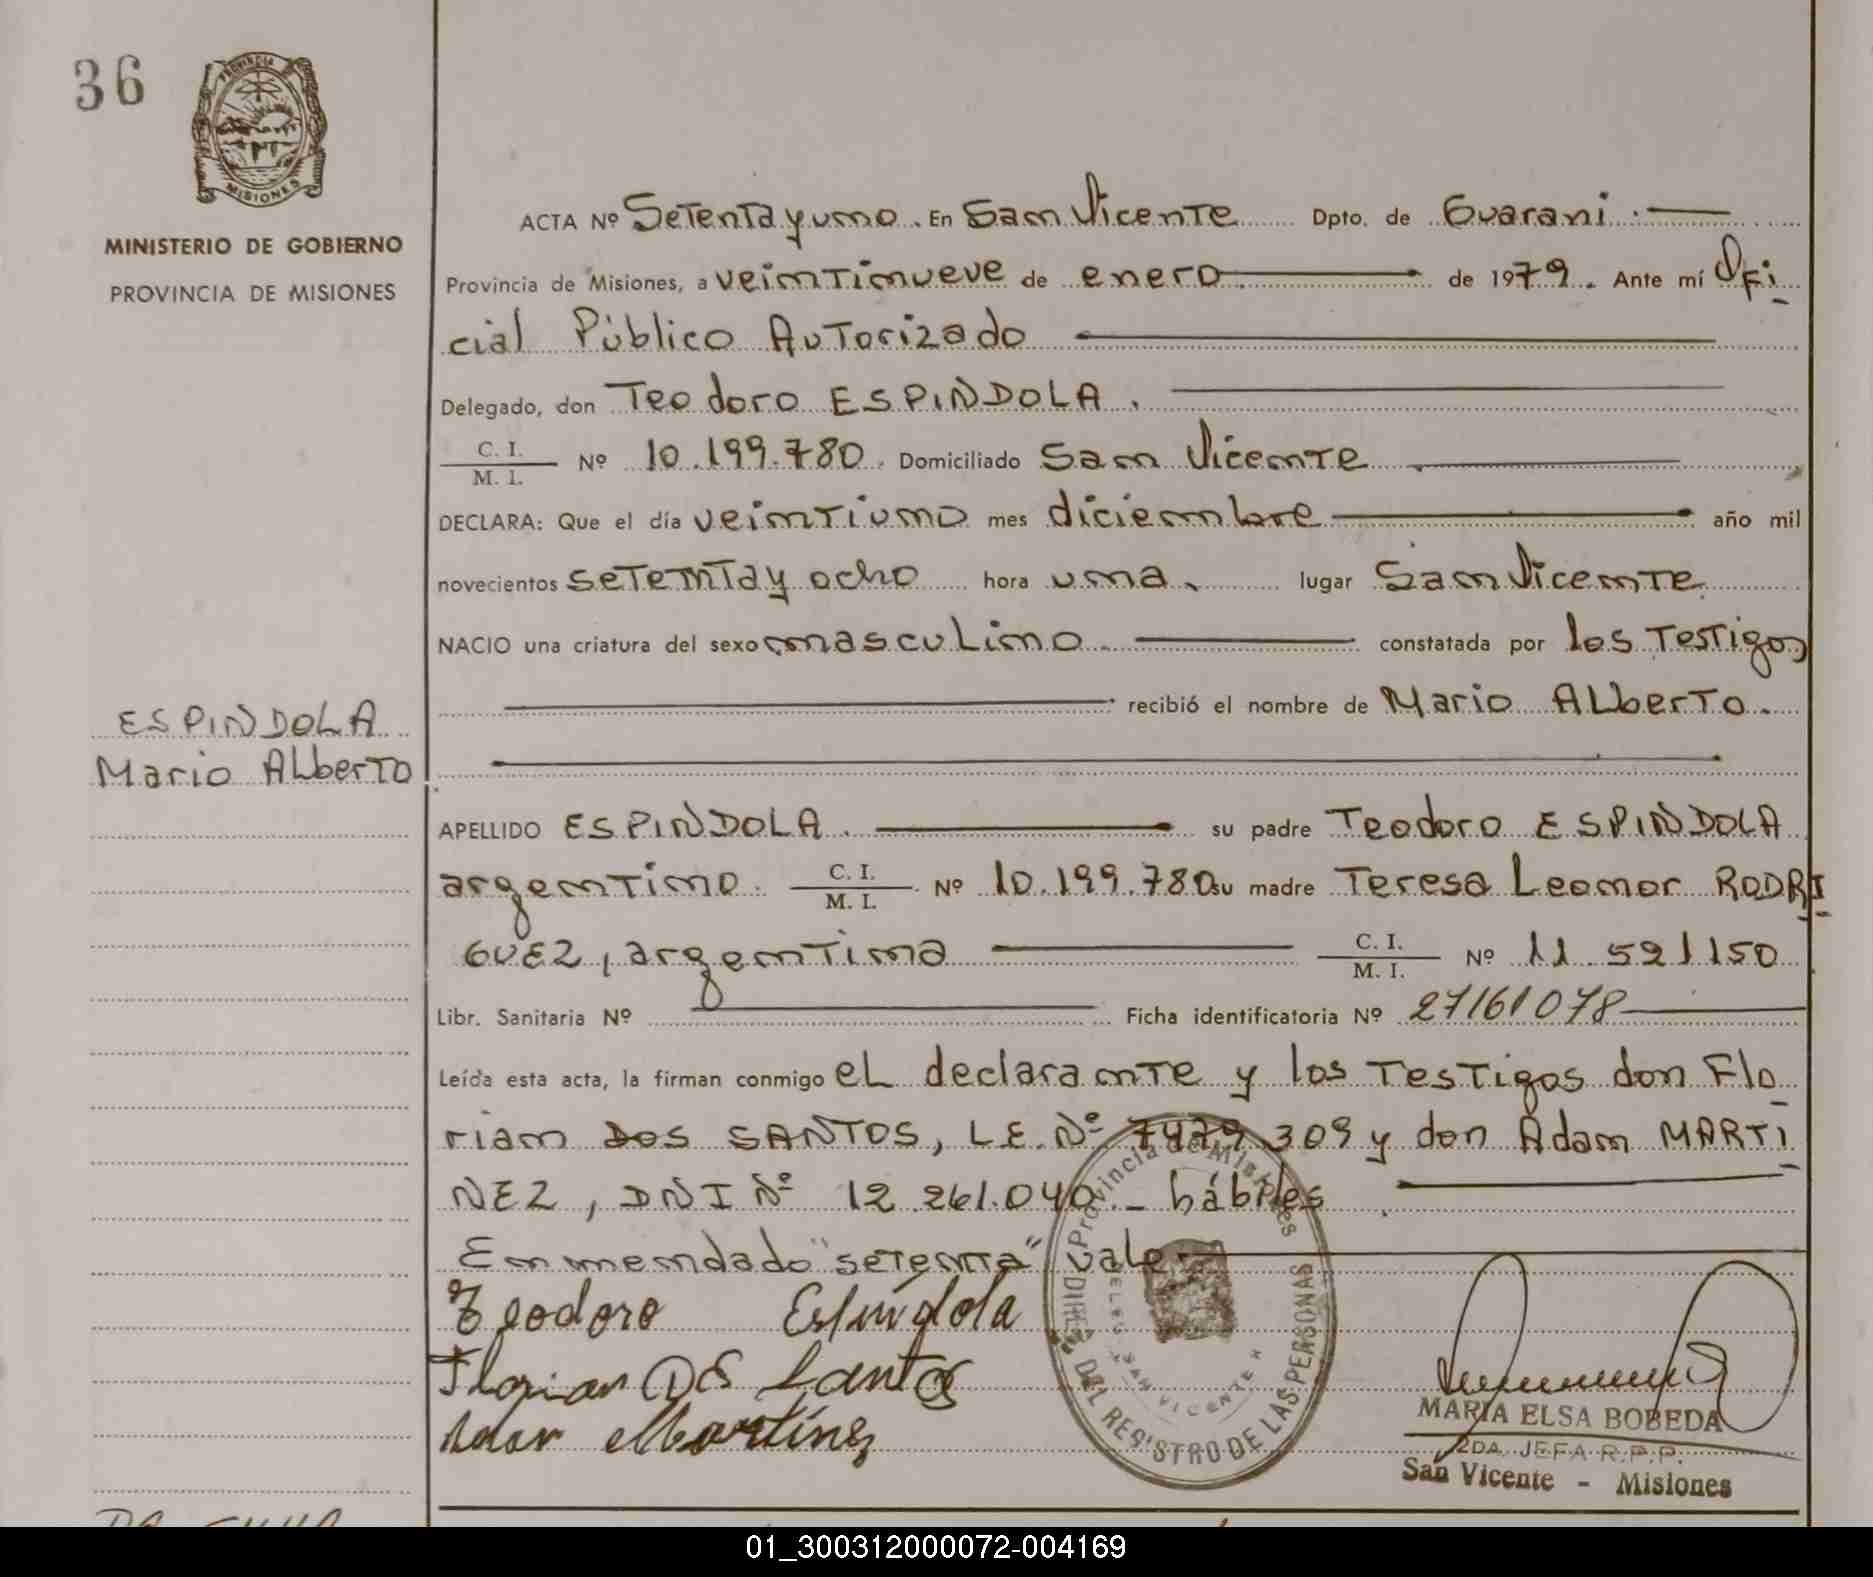 36
PROVINCIA
MISIONES
MINISTERIO DE GOBIERNO
PROVINCIA DE MISIONES
ACTA Nº Setenta y uno. En San Vicente Dpto. de Guarani.
Provincia de Misiones, a veintinueve de enero de 1979. Ante mí Ofi
cial Público Autorizado
Delegado, don Teodoro ESPINDOLA.
C. I.
M. I.
Nº 10.199.780. Domiciliado San Vicente
DECLARA: Que el día veintiuno mes diciembre año mil
novecientos setenta y ocho hora una. lugar San Vicente
NACIO una criatura del sexo masculino constatada por los testigos
recibió el nombre de Mario Alberto.
ESPINDOLA
Mario Alberto
APELLIDO ESPINDOLA. su padre Teodoro ESPINDOLA
argentino. C. I. M. I. Nº 10.199.780 su madre Teresa Leonor RODRI
GUEZ, argentina C. I. M. I. Nº 11 521150
Libr. Sanitaria Nº Ficha identificatoria Nº 27161078
Leída esta acta, la firman conmigo el declarante y los testigos don Flo
rian DOS SANTOS, L.E. Nº 7479.309 y don Adam MARTI
NEZ, DNI Nº 12.261.040.- hábiles
Enmendado "setenta" vale
Teodoro Espíndola
Florian DS Santos
Adan Martínez
Provincia de Misiones
DEL REGISTRO DE LAS PERSONAS
SAN VICENTE
MARIA ELSA BOBEDA
2DA. JEFA R.P.P.
San Vicente - Misiones
01_300312000072-004169